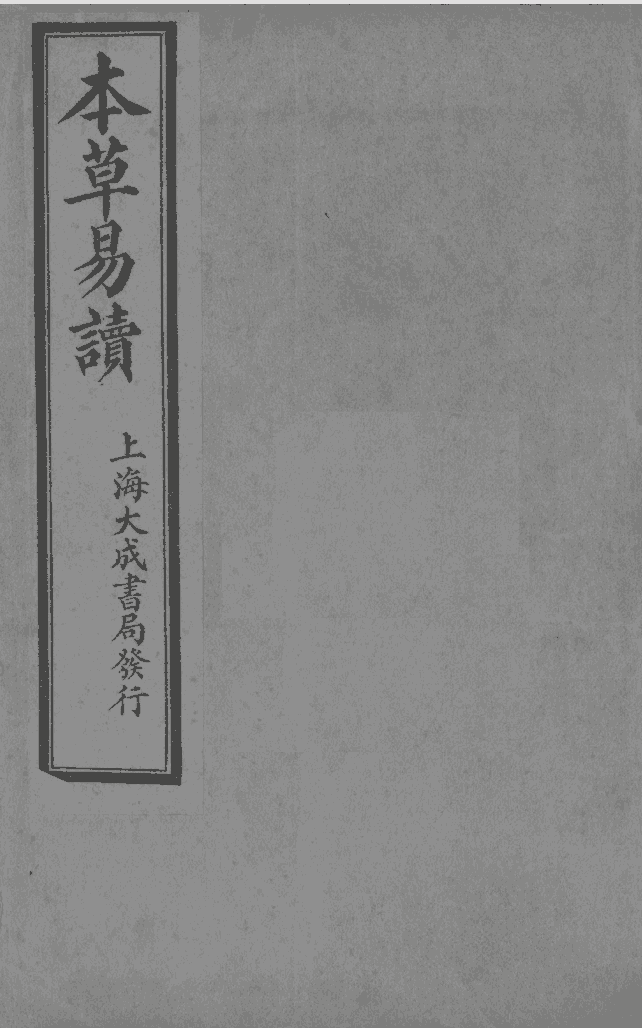 本草易讀
上海大成書局發行